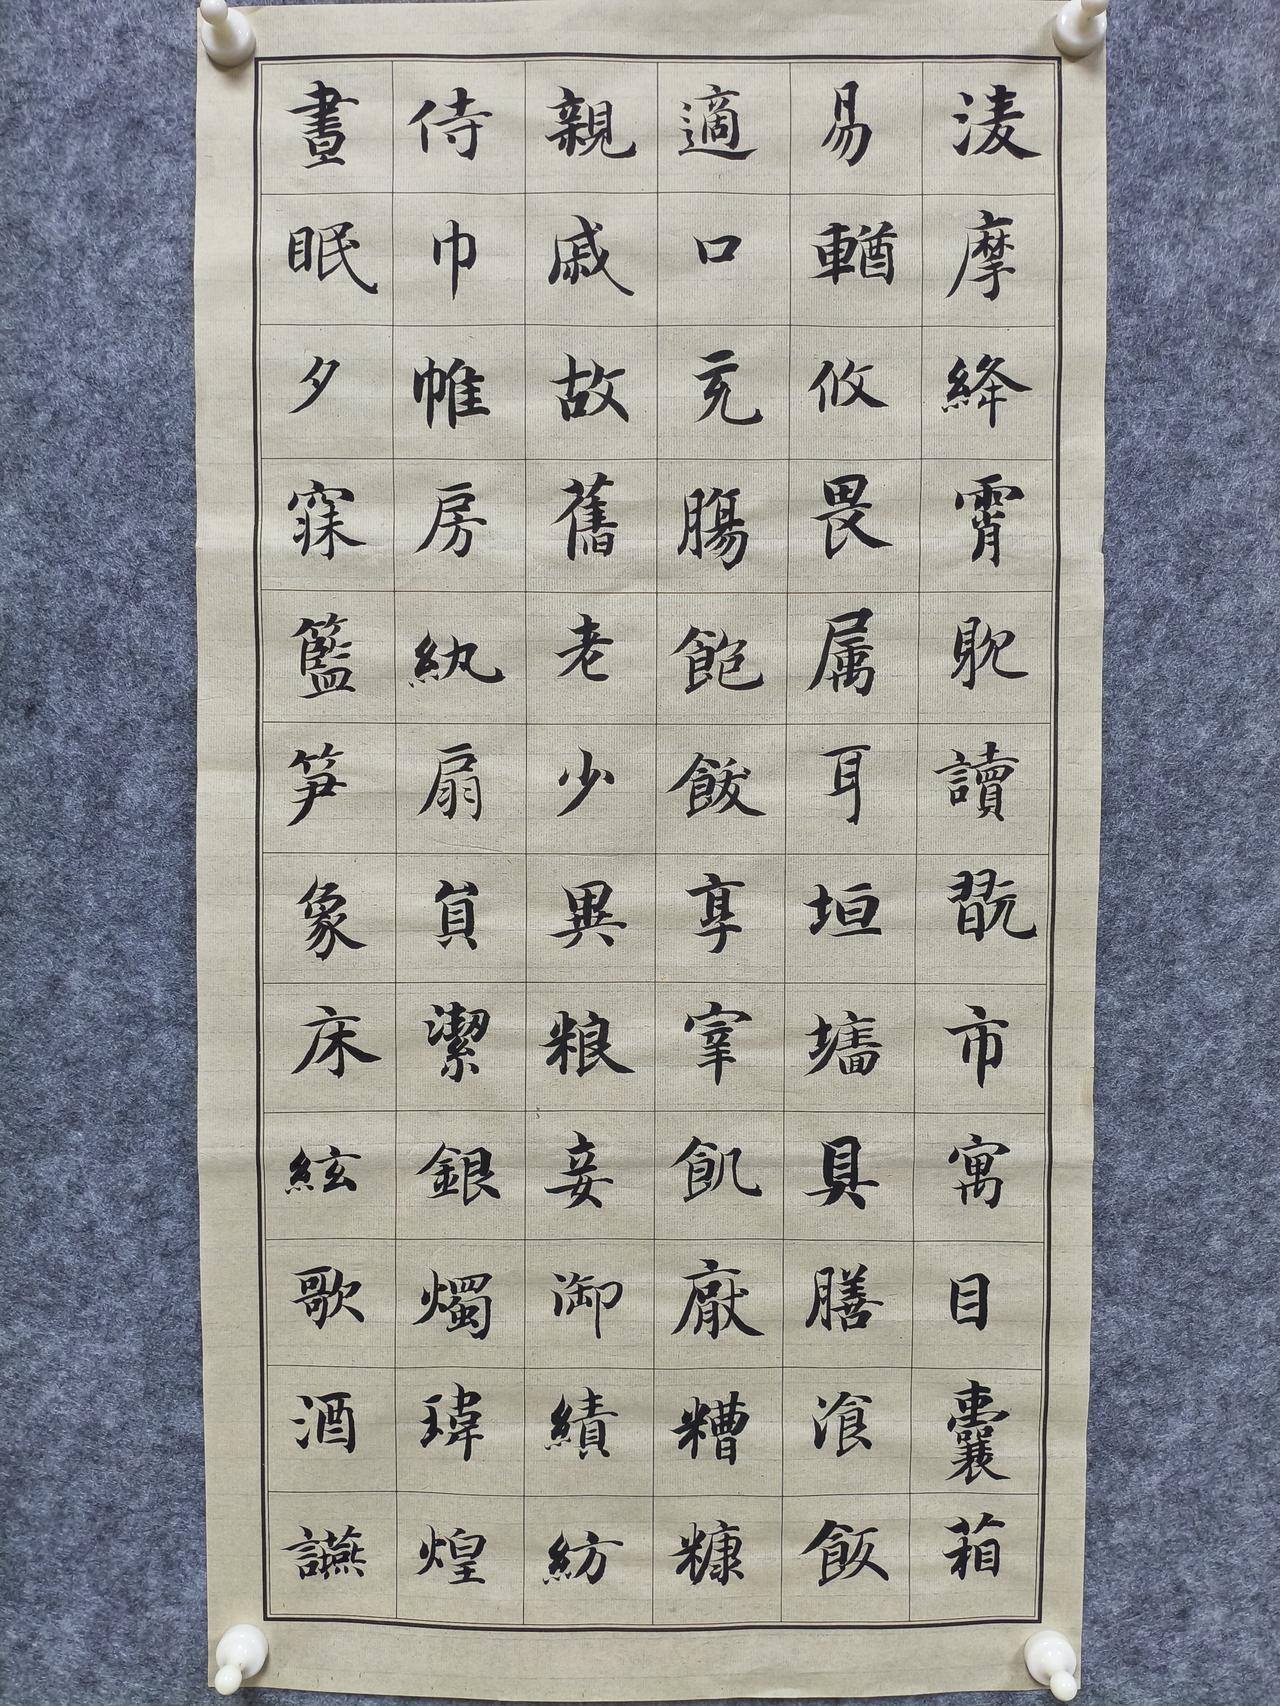 淩摩絳霄耽讀翫市寓目囊箱
易輶攸畏属耳垣墻具膳飡飯
適口充腸飽飫享宰飢厭糟糠
親戚故舊老少異粮妾御績紡
侍巾帷房紈扇員潔銀燭瑋煌
晝眠夕寐籃笋象床絃歌酒讌